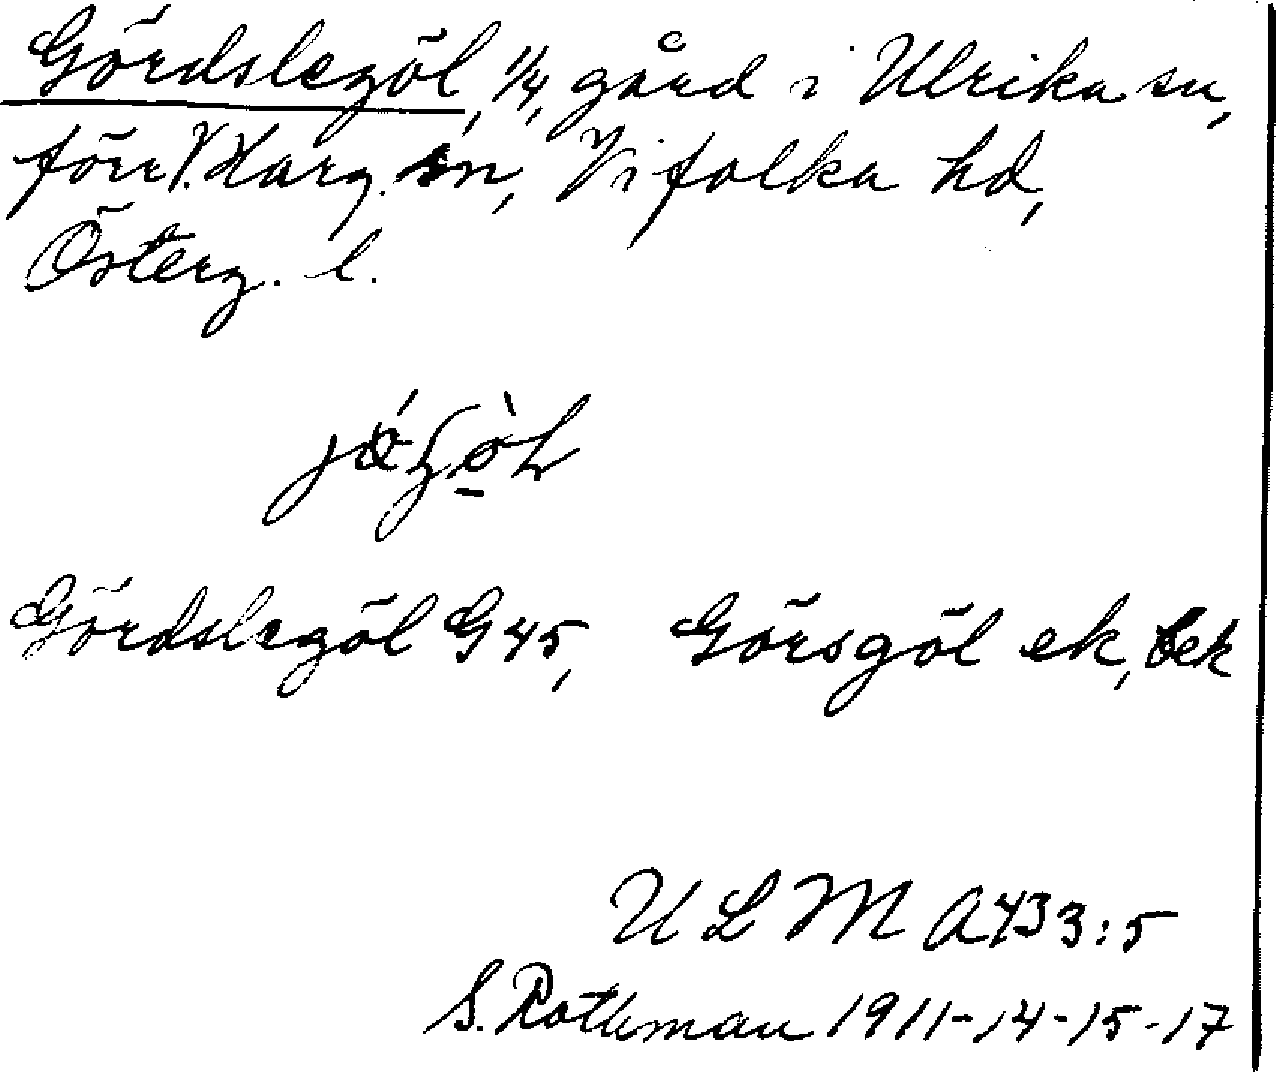 Gördslegöl, 1/4, gård i Ulrika sn,
förr V. Harg. sn, Vifolka hd,
Österg. l.
Gördslegöl G 45, Görsgöl ek, bek
U L M A 433:5
S. Rothman 1911-14-15-17